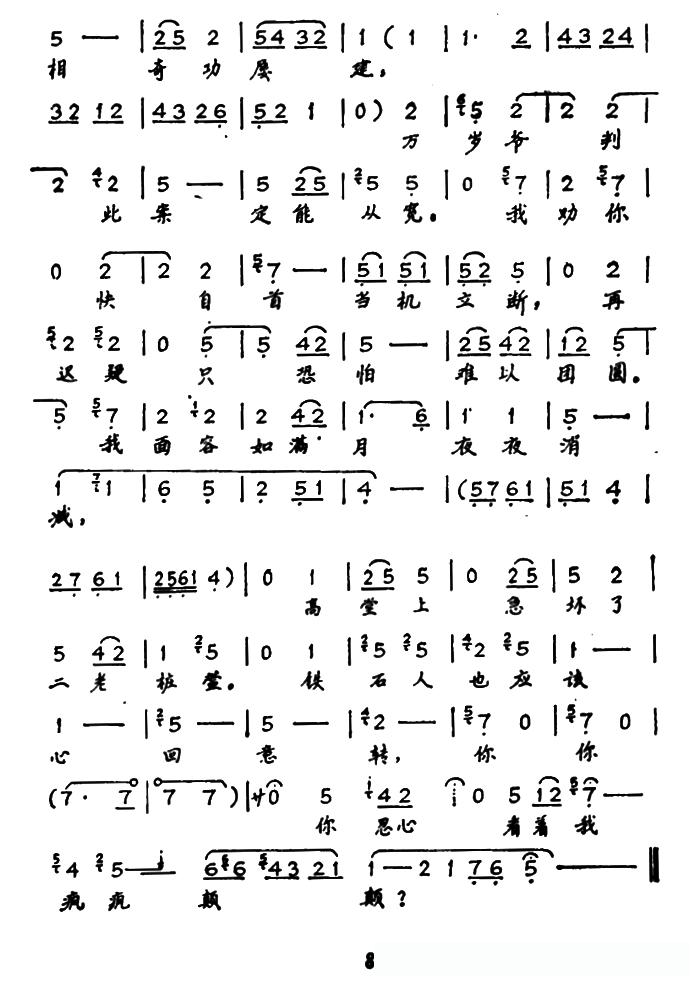 5 — | 25 2 | 54 32 | 1 ( 1 | 1· 2 | 43 24 |
相 奇 功 屡 建，
32 12 | 43 26 | 52 1 | 0 ) 2 | 5 2 | 2 2 |
万 岁 爷 判
2 2 | 5 — | 5 25 | 5 5 | 0 7 | 2 7 |
此 案 定 能 从 宽。 我 劝 你
0 2 | 2 2 | 7 — | 51 51 | 52 5 | 0 2 |
快 自 首 当 机 立 断， 再
2 2 | 0 5 | 5 42 | 5 — | 25 42 | 12 5 |
迟 疑 只 恐 怕 难 以 团 圆。
5 7 | 2 2 | 2 42 | 1· 6 | 1 1 | 5 — |
我 面 容 如 满 月 夜 夜 消
1 1 | 6 5 | 2 51 | 4 — | ( 57 61 | 51 4 |
减，
27 61 | 2561 4 ) | 0 1 | 25 5 | 0 25 | 5 2 |
高 堂 上 急 坏 了
5 42 | 1 5 | 0 1 | 5 5 | 2 5 | 1 — |
二 老 椿 萱。 铁 石 人 也 应 该
1 — | 5 — | 5 — | 2 — | 7 0 | 7 0 |
心 回 意 转， 你 你
( 7· 7 | 7 7 ) | 廾 0 5 42 i 0 5 12 7 —
你 忍心 看着 我
4 5 — 6 6 43 21 1 — 2 1 76 5 —
疯 疯 颠 颠？
8